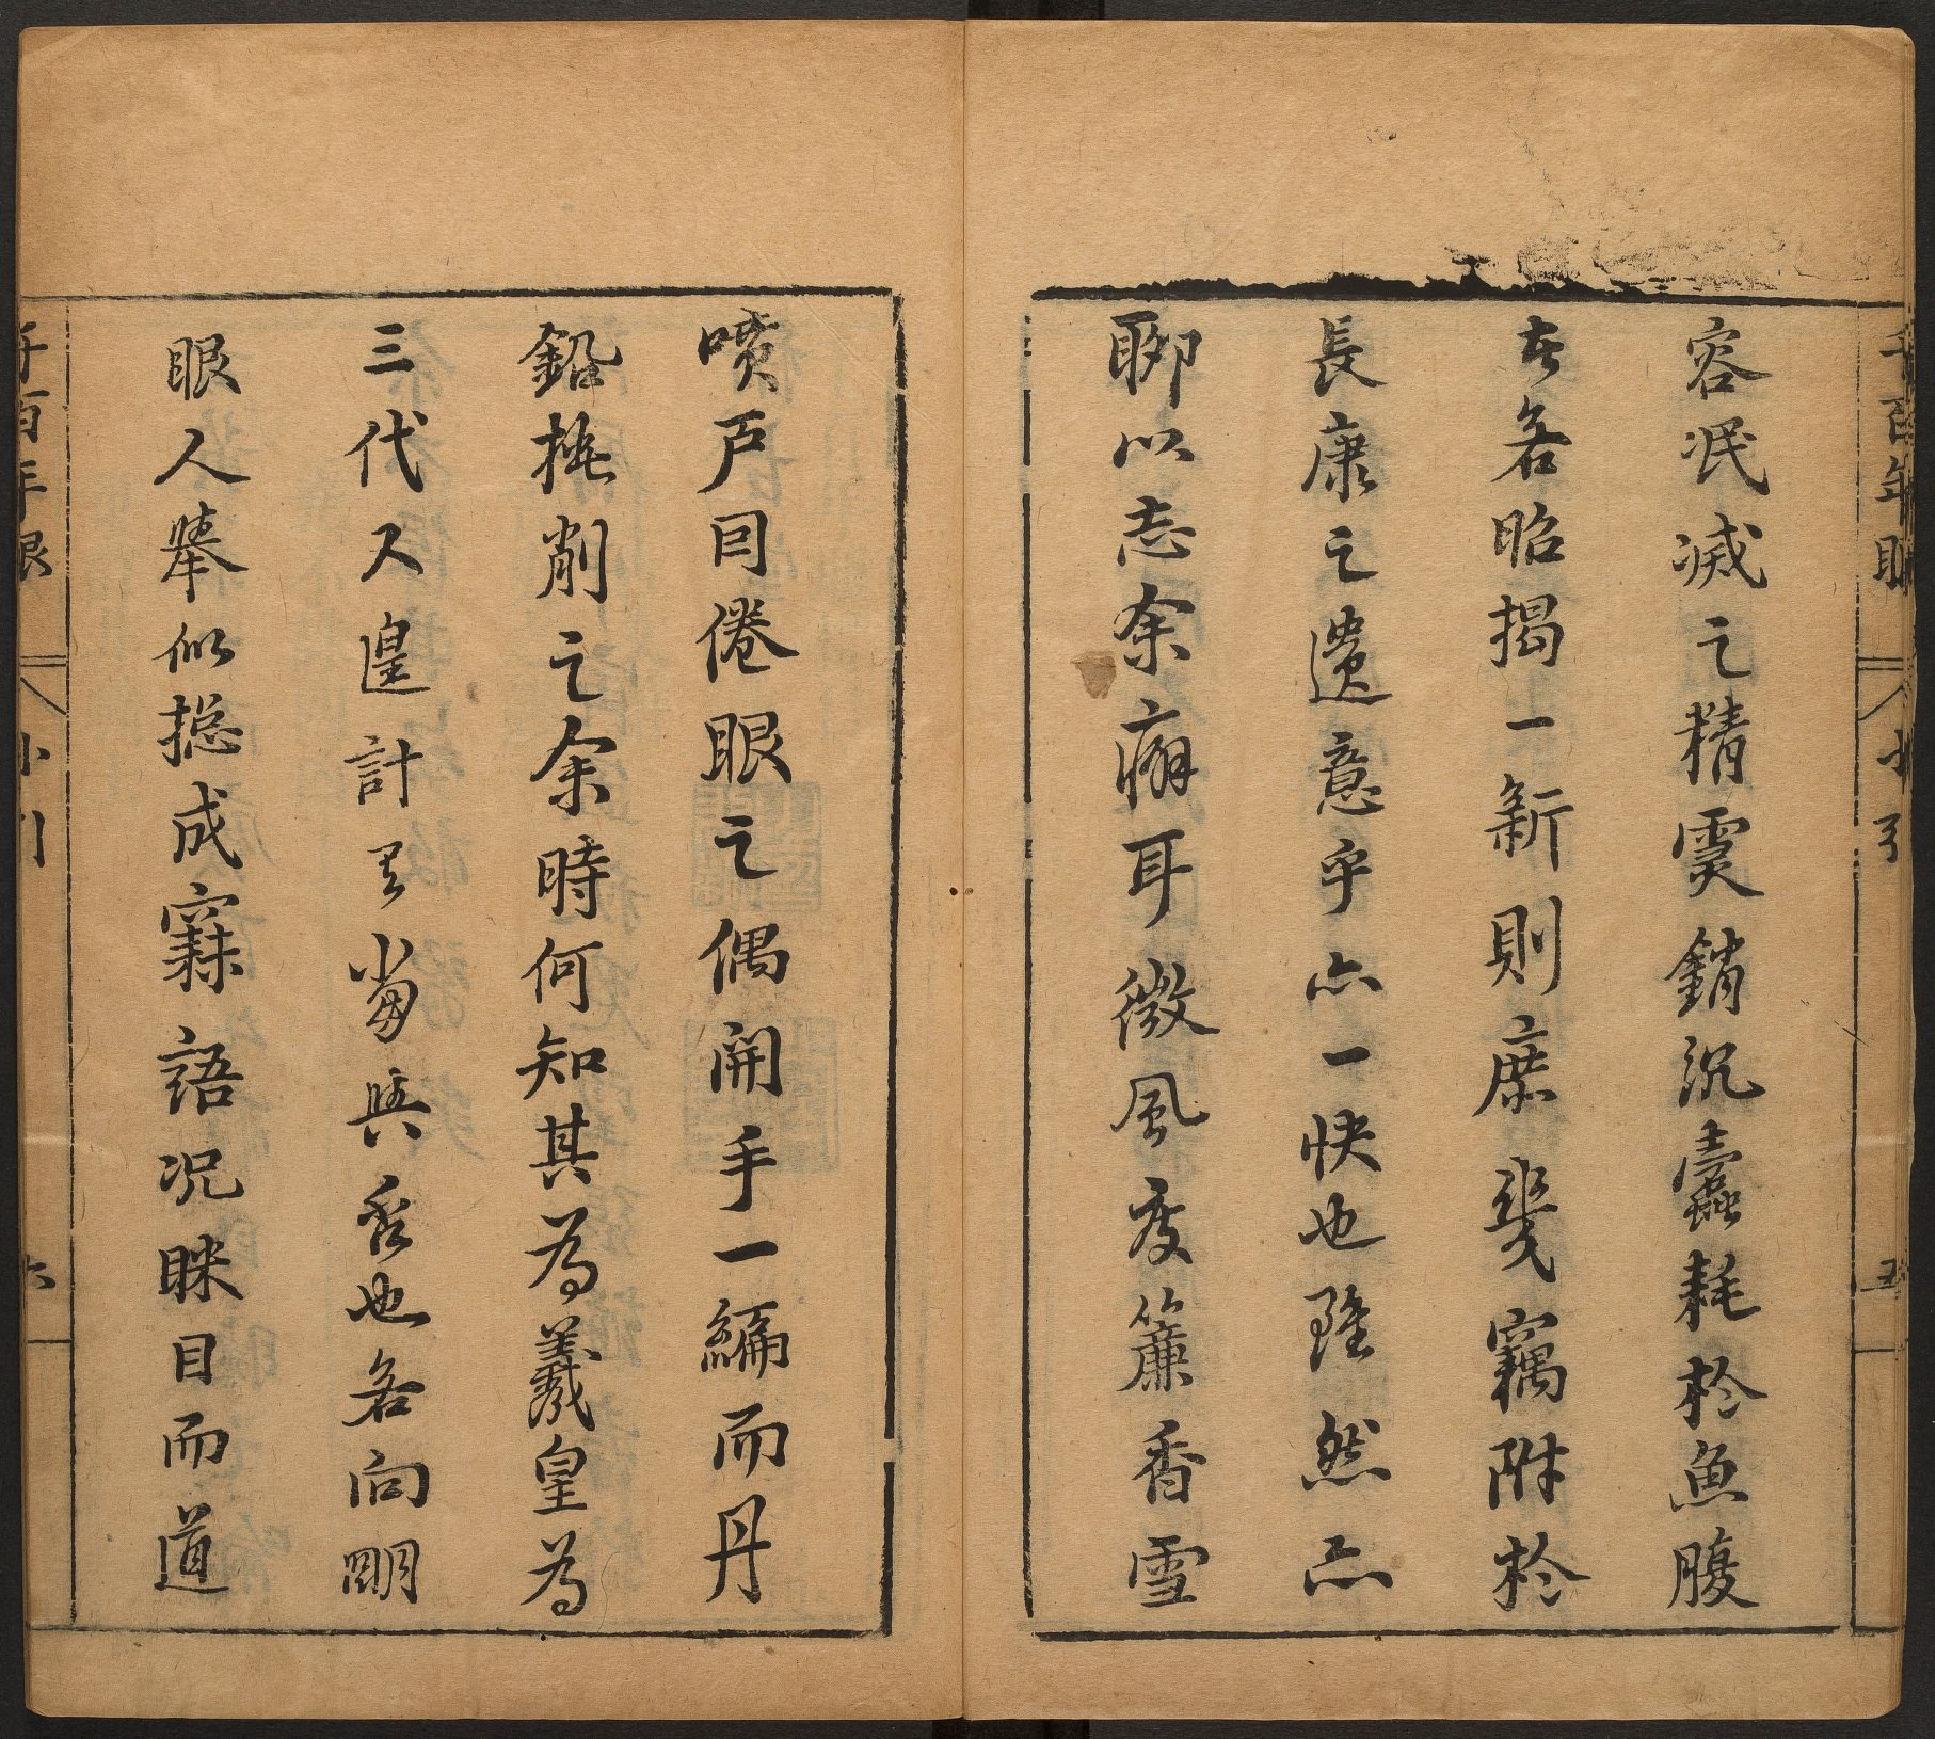 容泯滅之精靈銷沉蠹耗於魚腹
者名昭揭一新則庶幾竊附於
長康之遺意乎亦一快也雖然亦
聊以志余癖耳微風度簾香雪
噴戶因倦眼之偶開手一編而丹
鉛挩削之余時何知其為羲皇為
三代又遑計其當與否也若向明
眼人舉似摠成寱語況眯目而道
千百年眼 小引 五
千百年眼 小引 六